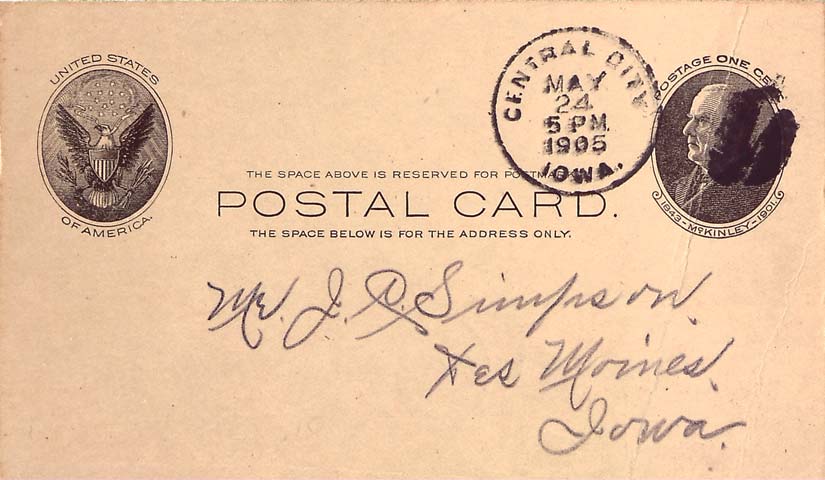 UNITED STATES
OF AMERICA.
CENTRAL CITY
MAY
24
5 PM
1905
IOWA.
POSTAGE ONE
1843 - McKINLEY - 1901.
THE SPACE ABOVE IS RESERVED FOR POSTMARK
POSTAL CARD.
THE SPACE BELOW IS FOR THE ADDRESS ONLY.
Mr. J. P. Simpson
Des Moines.
Iowa.